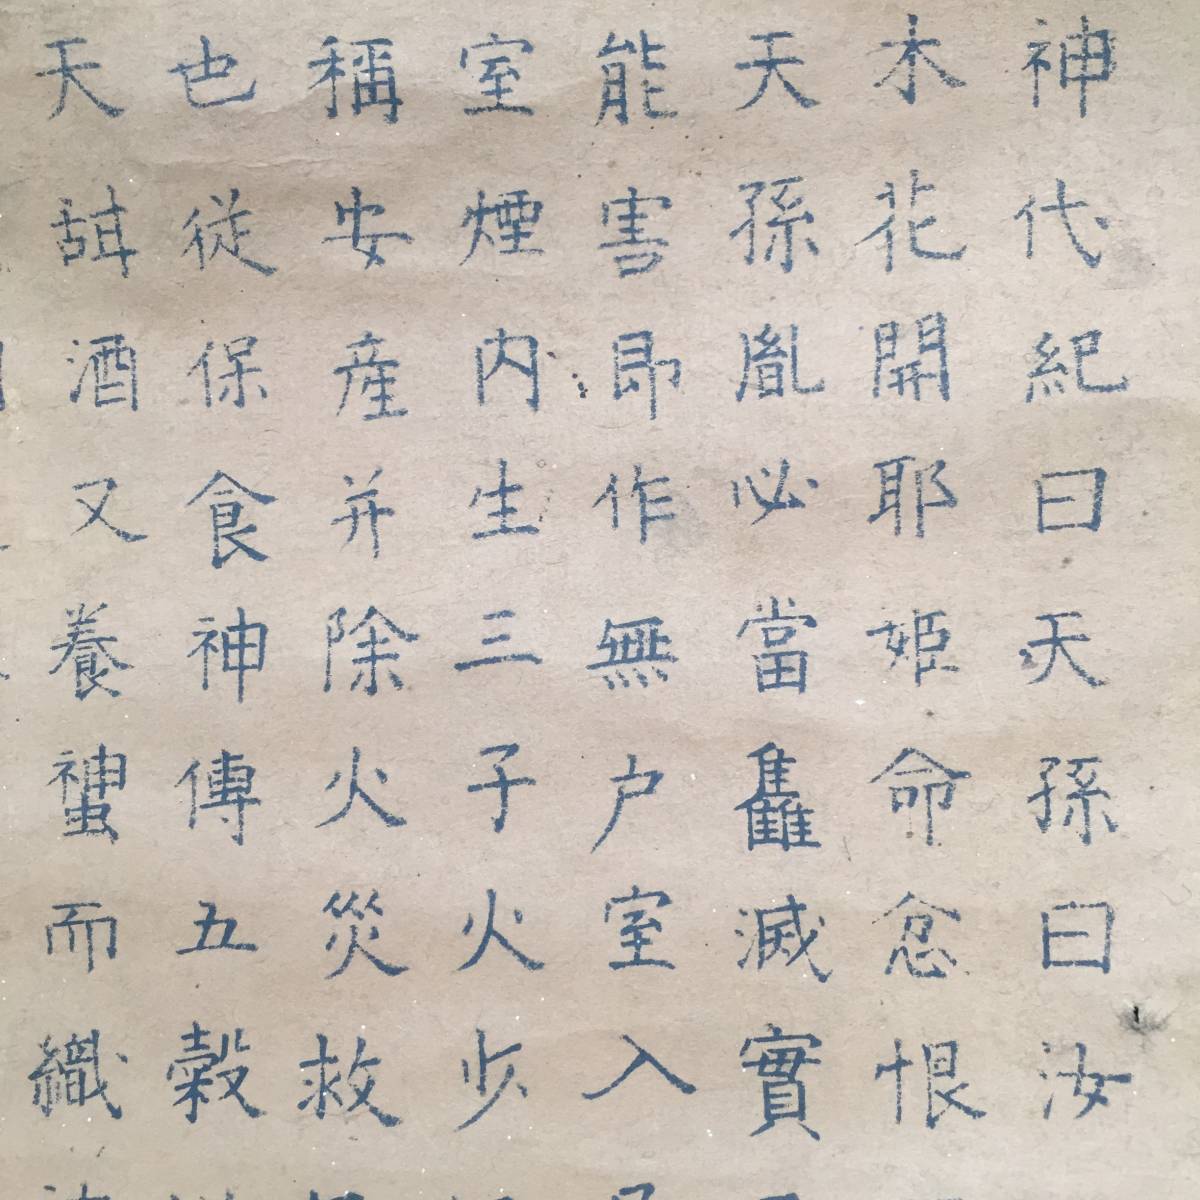 神代紀曰天孫曰汝
木花開耶姫命忿恨
天孫胤必當雦滅實
能害即作無户室入
室煙内生三子火歩
稱安産并除火災救
也従保食神傳五穀
天甜酒又養蚕而織